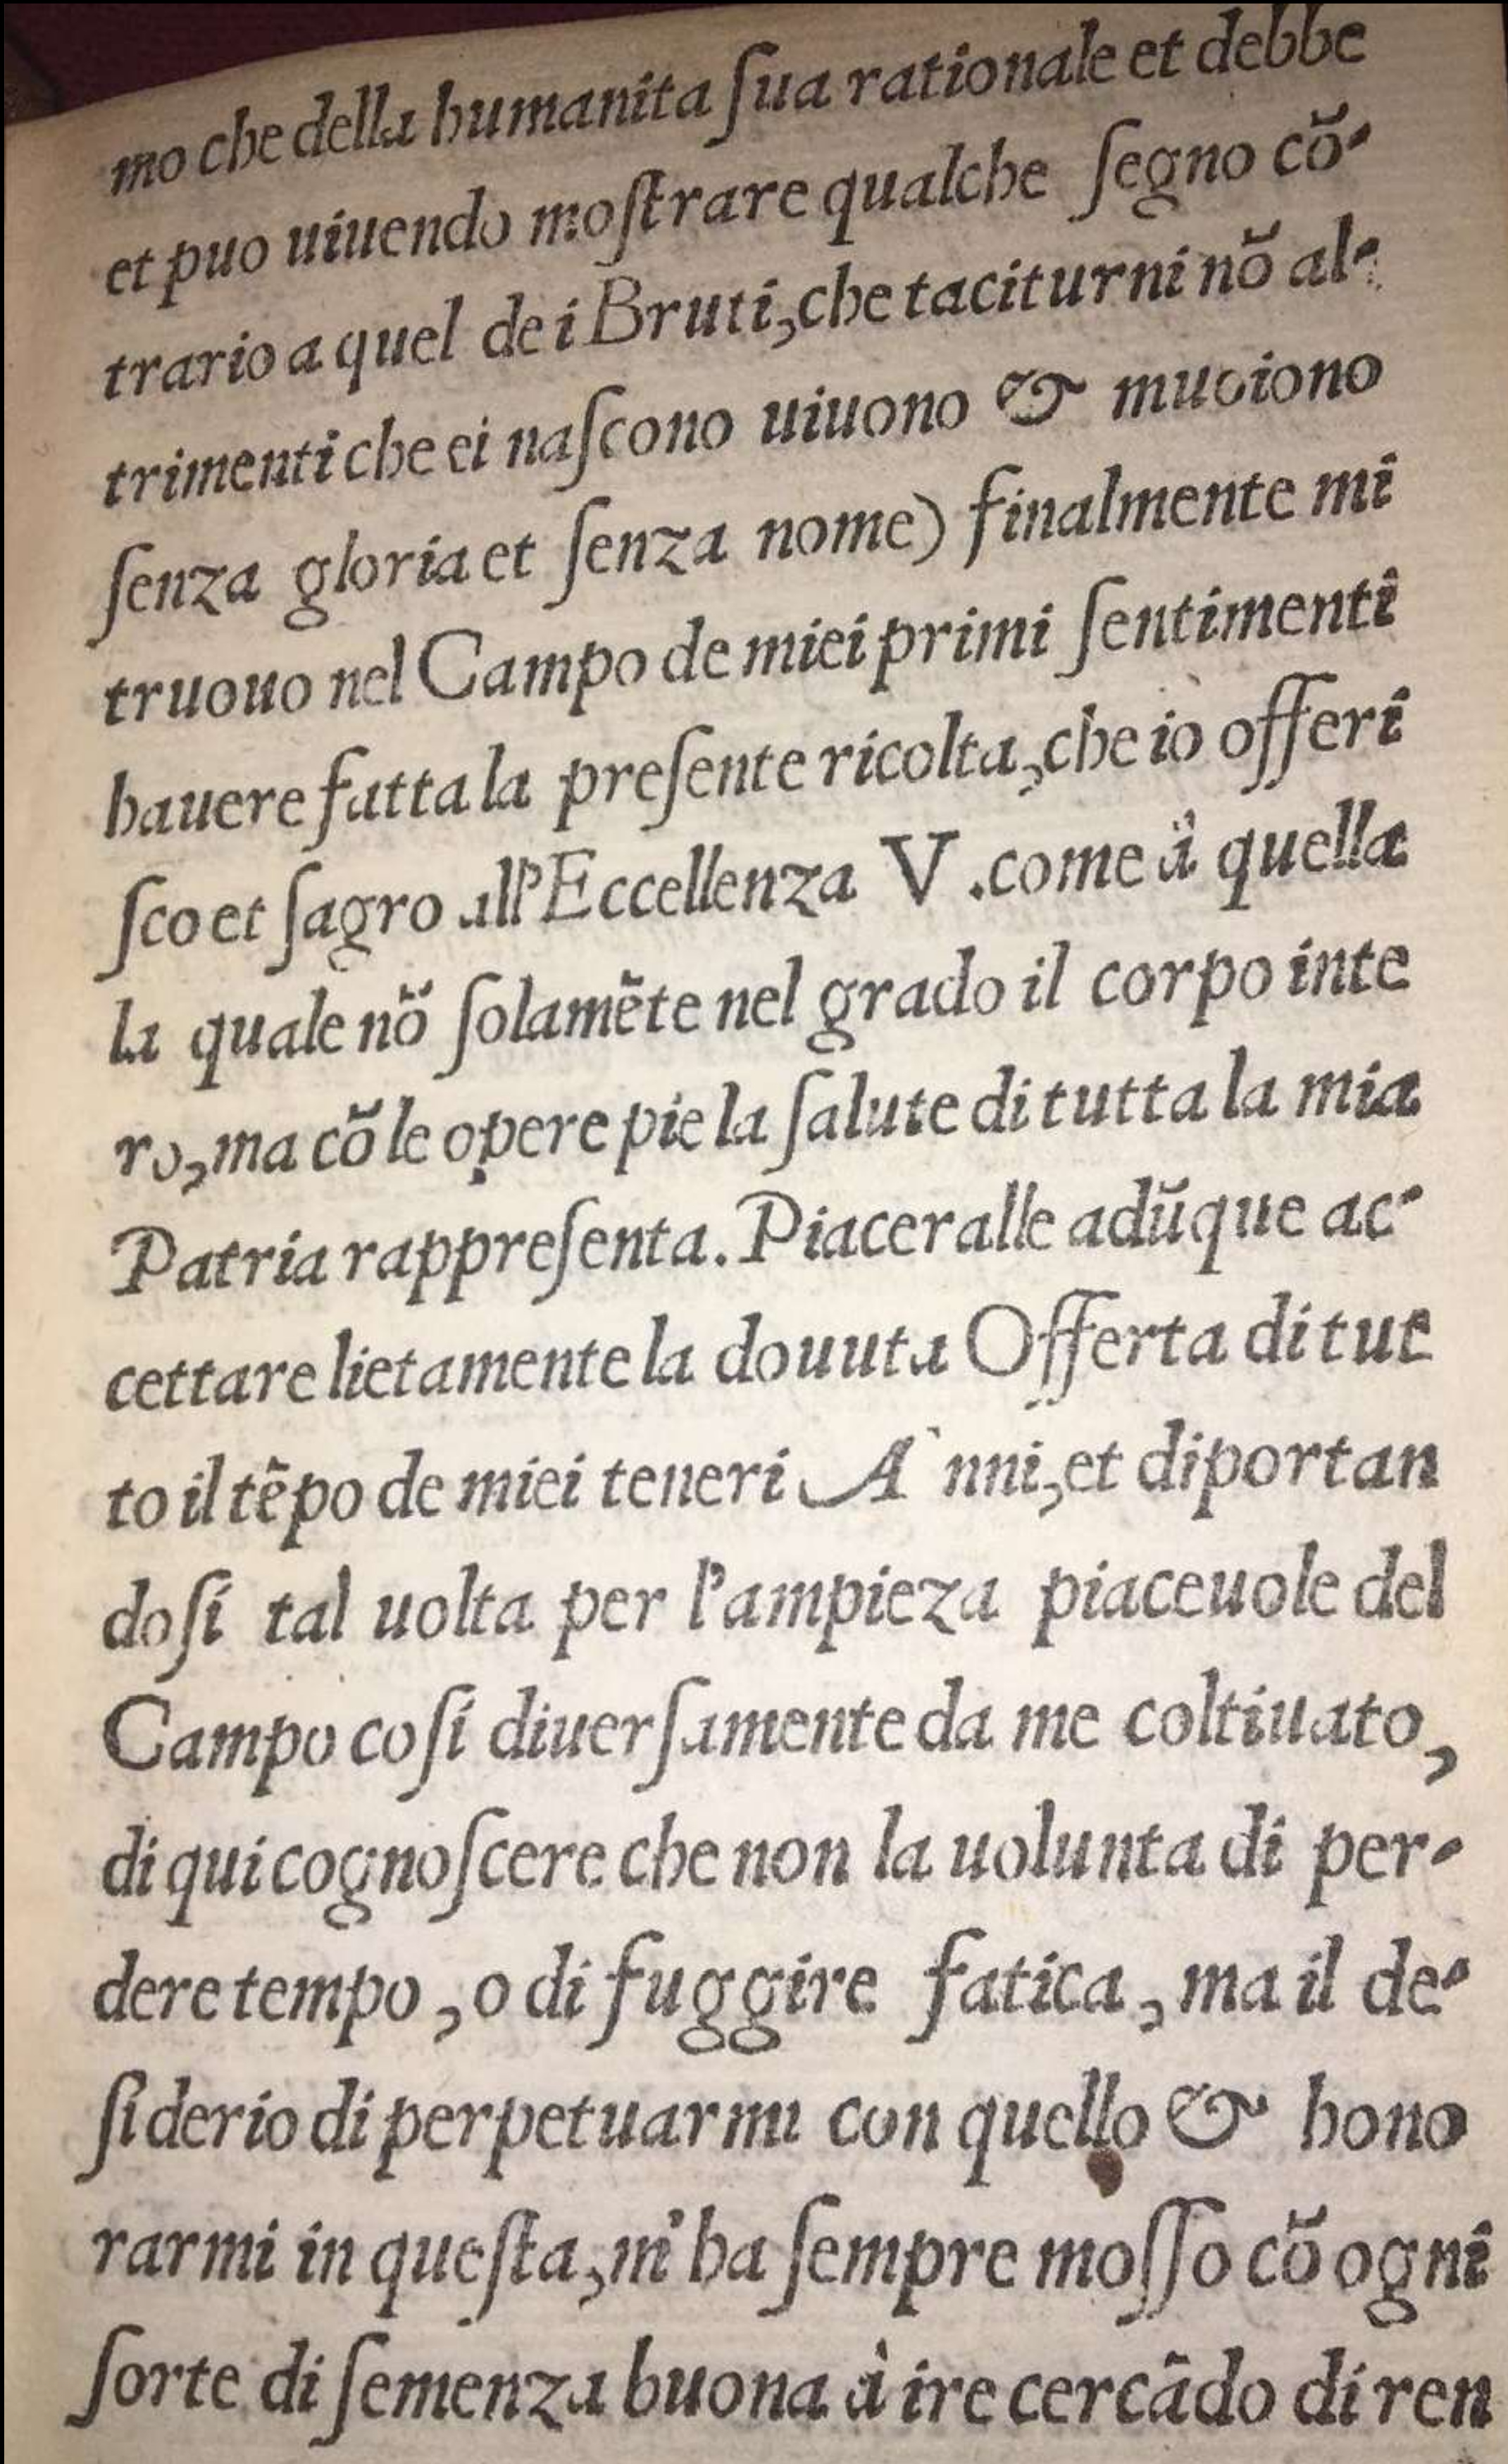 mo che della humanita ſua rationale et debbe
et puo uiuendo moſtrare qualche ſegno cõ-
trario a quel dei Bruti, che taciturni nõ al-
trimenti che ei naſcono uiuono & muoiono
ſenza gloria et ſenza nome) finalmente mi
truouo nel Campo de miei primi ſentimenti
hauere fatta la preſente ricolta, che iò offeri
ſco et ſagro all'Eccellenza V. come à quella
la quale nõ ſolamẽte nel grado il corpo inte
ro, ma cõ le opere pie la ſalute di tutta la mia
Patria rappreſenta. Piaceralle adũque ac-
cettare lietamente la douuta Offerta di tut
to il tẽpo de miei teneri A`nni, et diportan
doſi tal uolta per l'ampieza piaceuole del
Campo coſi diuerſamente da me coltiuato,
di qui cognoſcere che non la uolunta di per-
dere tempo, o di fuggire fatica, ma il de-
ſiderio di perpetuarmi con quello & hono
rarmi in queſta, m'ha ſempre moſſo cõ ogni
ſorte di ſemenza buona à ire cercãdo di ren